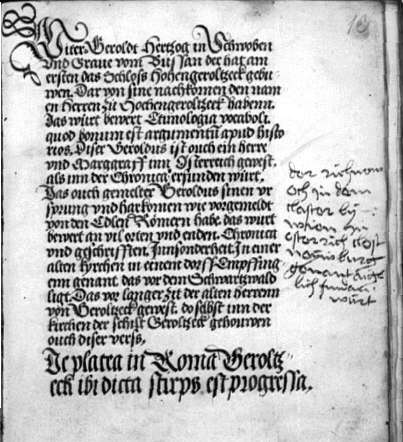 Witer Geroldt Hertzog in Schwoben
Vnd Graue vom Bussan der hat am
ersten das Schloss Hohengeroltzeck gebu
wen. Dar von sine nachkomen den nam
en Herren zu Hochengeroltzeck habenn.
Das würt bewert Ethimologia vocaboli.
quod bonum est argumentū apud histo
ricos. Diser Geroldus ist ouch ein herre
vnd Marggraff inn Osterreich gewest.
als inn der Chronica erfunden würt.
Das ouch gemelter Geroldus sinen vr
sprung vnd harkomen wie vorgemeldt
von den Edlen Römern habe. das wurt
bewert an vil orten vnd enden. Chronica
vnd geschrifften. Innsonderheit In einer
alten kyrchen in einem dorff Empffing
enn genant das vor dem Schwartzwald
ligt. Das vor langer zit der alten herrenn
von Geroltzeck gewest. do selbst inn der
kirchen der schilt Geroltzeck gehouwen
ouch diser verss.
De platea in Roma Geroltz
eck ibi dicta stirps est progressa.
och in dem
closter by
genant
würt